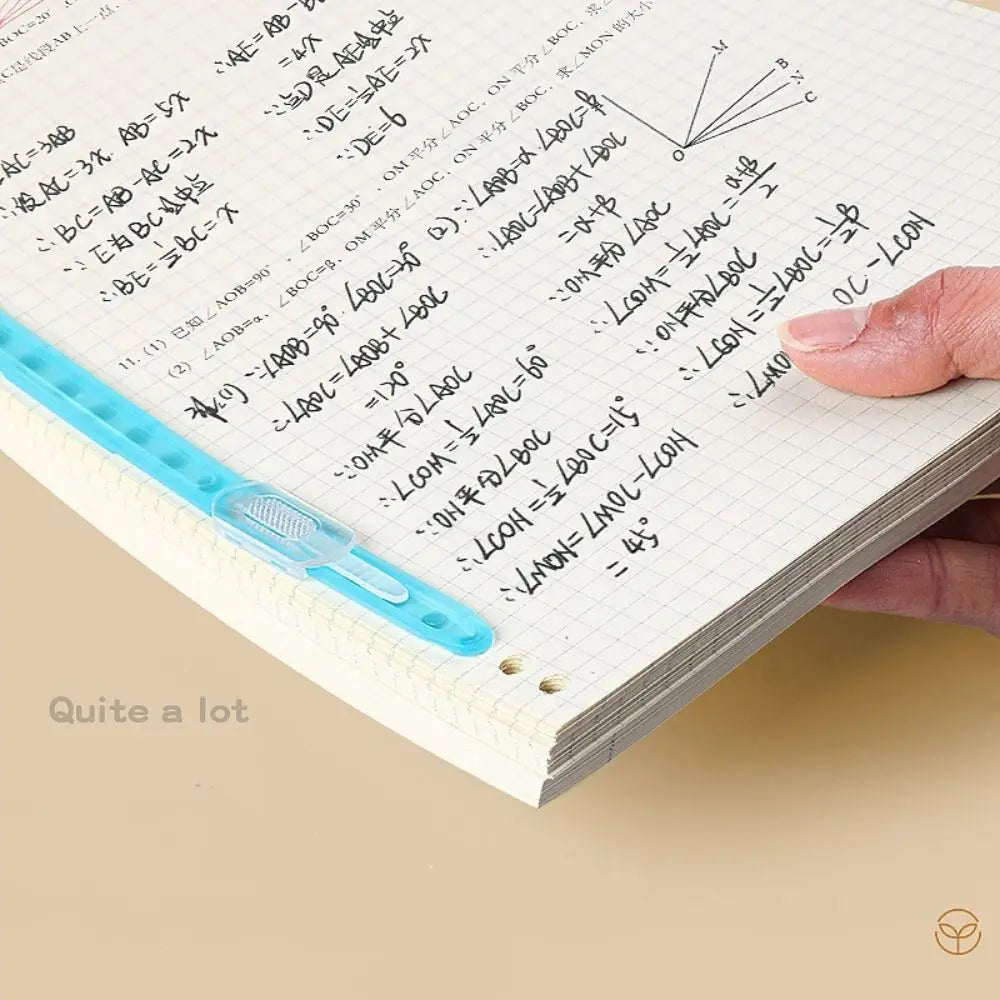 BOC=20°
C是线段AB上一点、
AC=3AB
∴设AC=3x. AB=5x
∴BC=AB-AC=2x
∵E为BC的中点
∴BE=½BC=x
∴AE=AB-B
=4x
∵点D是AE的中点
∴DE=½AE=2x
∵DE=6
11. (1) 已知∠AOB=90°, ∠BOC=30°, OM平分∠AOC、ON平分∠BOC、求∠
(2) ∠AOB=α、∠BOC=β、OM平分∠AOC、ON平分∠BOC、求∠MON的大小
(1) ∵∠AOB=90°. ∠BOC=30°
∴∠AOC=∠AOB+∠BOC
=120°
∵OM平分∠AOC
∴∠COM=½∠AOC=60°
∵ON平分∠BOC
∴∠CON=½∠BOC=15°
∴∠MON=∠MOC-∠CON
=45°
(2) ∵∠AOB=α ∠BOC=β
∴∠AOC=∠AOB+∠BOC
=α+β
∵OM平分∠AOC
∴∠COM=½∠AOC=α+β/2
∵ON平分∠BOC
∴∠CON=½∠BOC=½β
∴∠MO OC-∠CON
M
B
N
C
O
Quite a lot